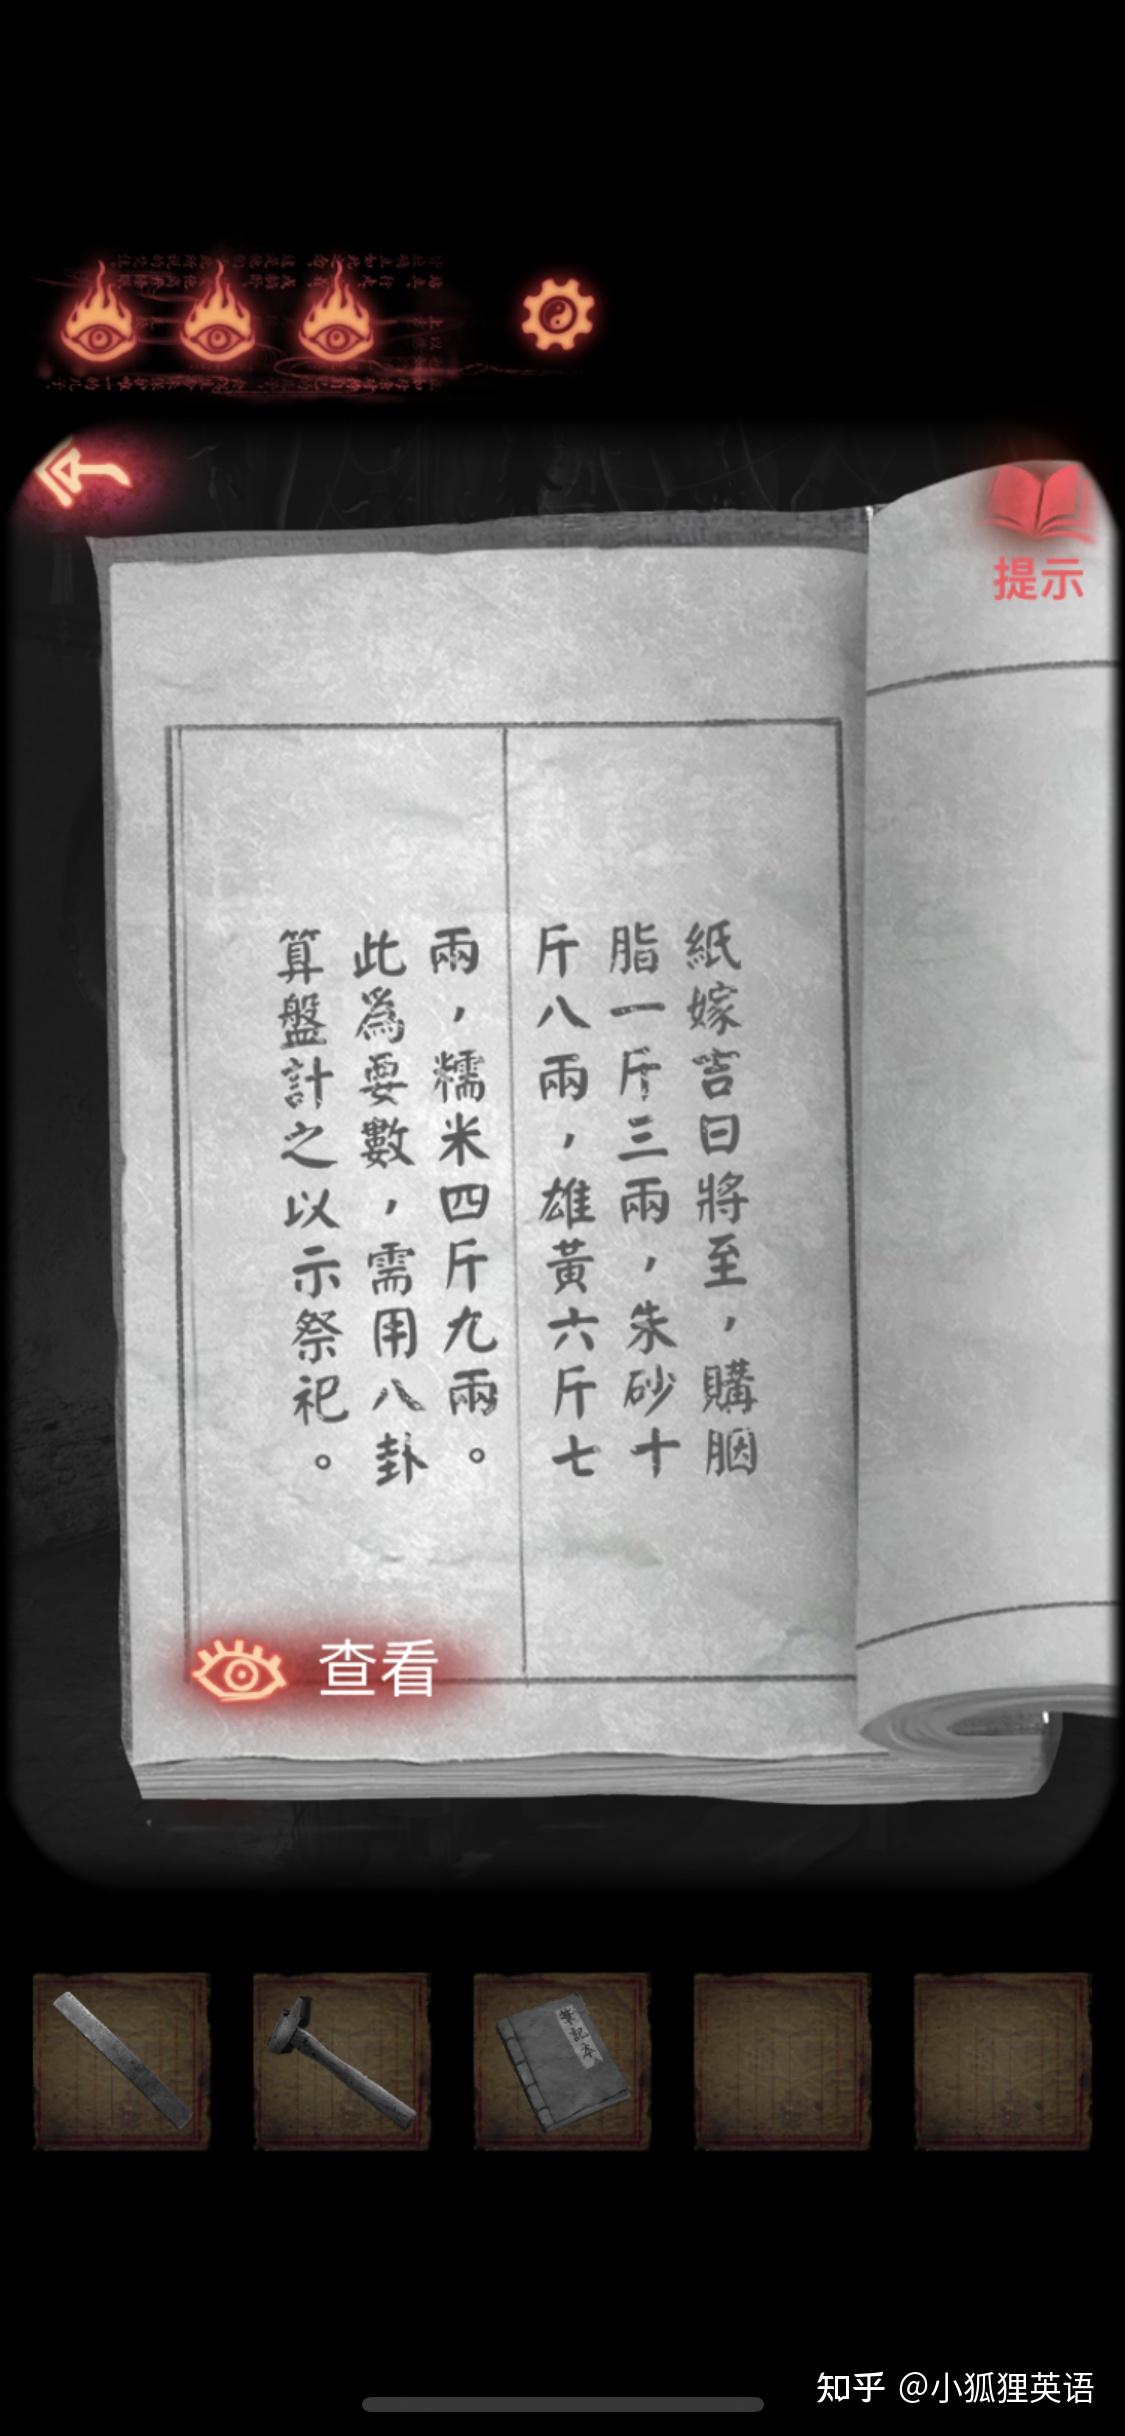 提示
紙嫁吉日將至，購胭
脂一斤三兩，朱砂十
斤八兩，雄黃六斤七
兩，糯米四斤九兩。
此爲要數，需用八卦
算盤計之以示祭祀。
查看
筆記本
知乎 @小狐狸英语